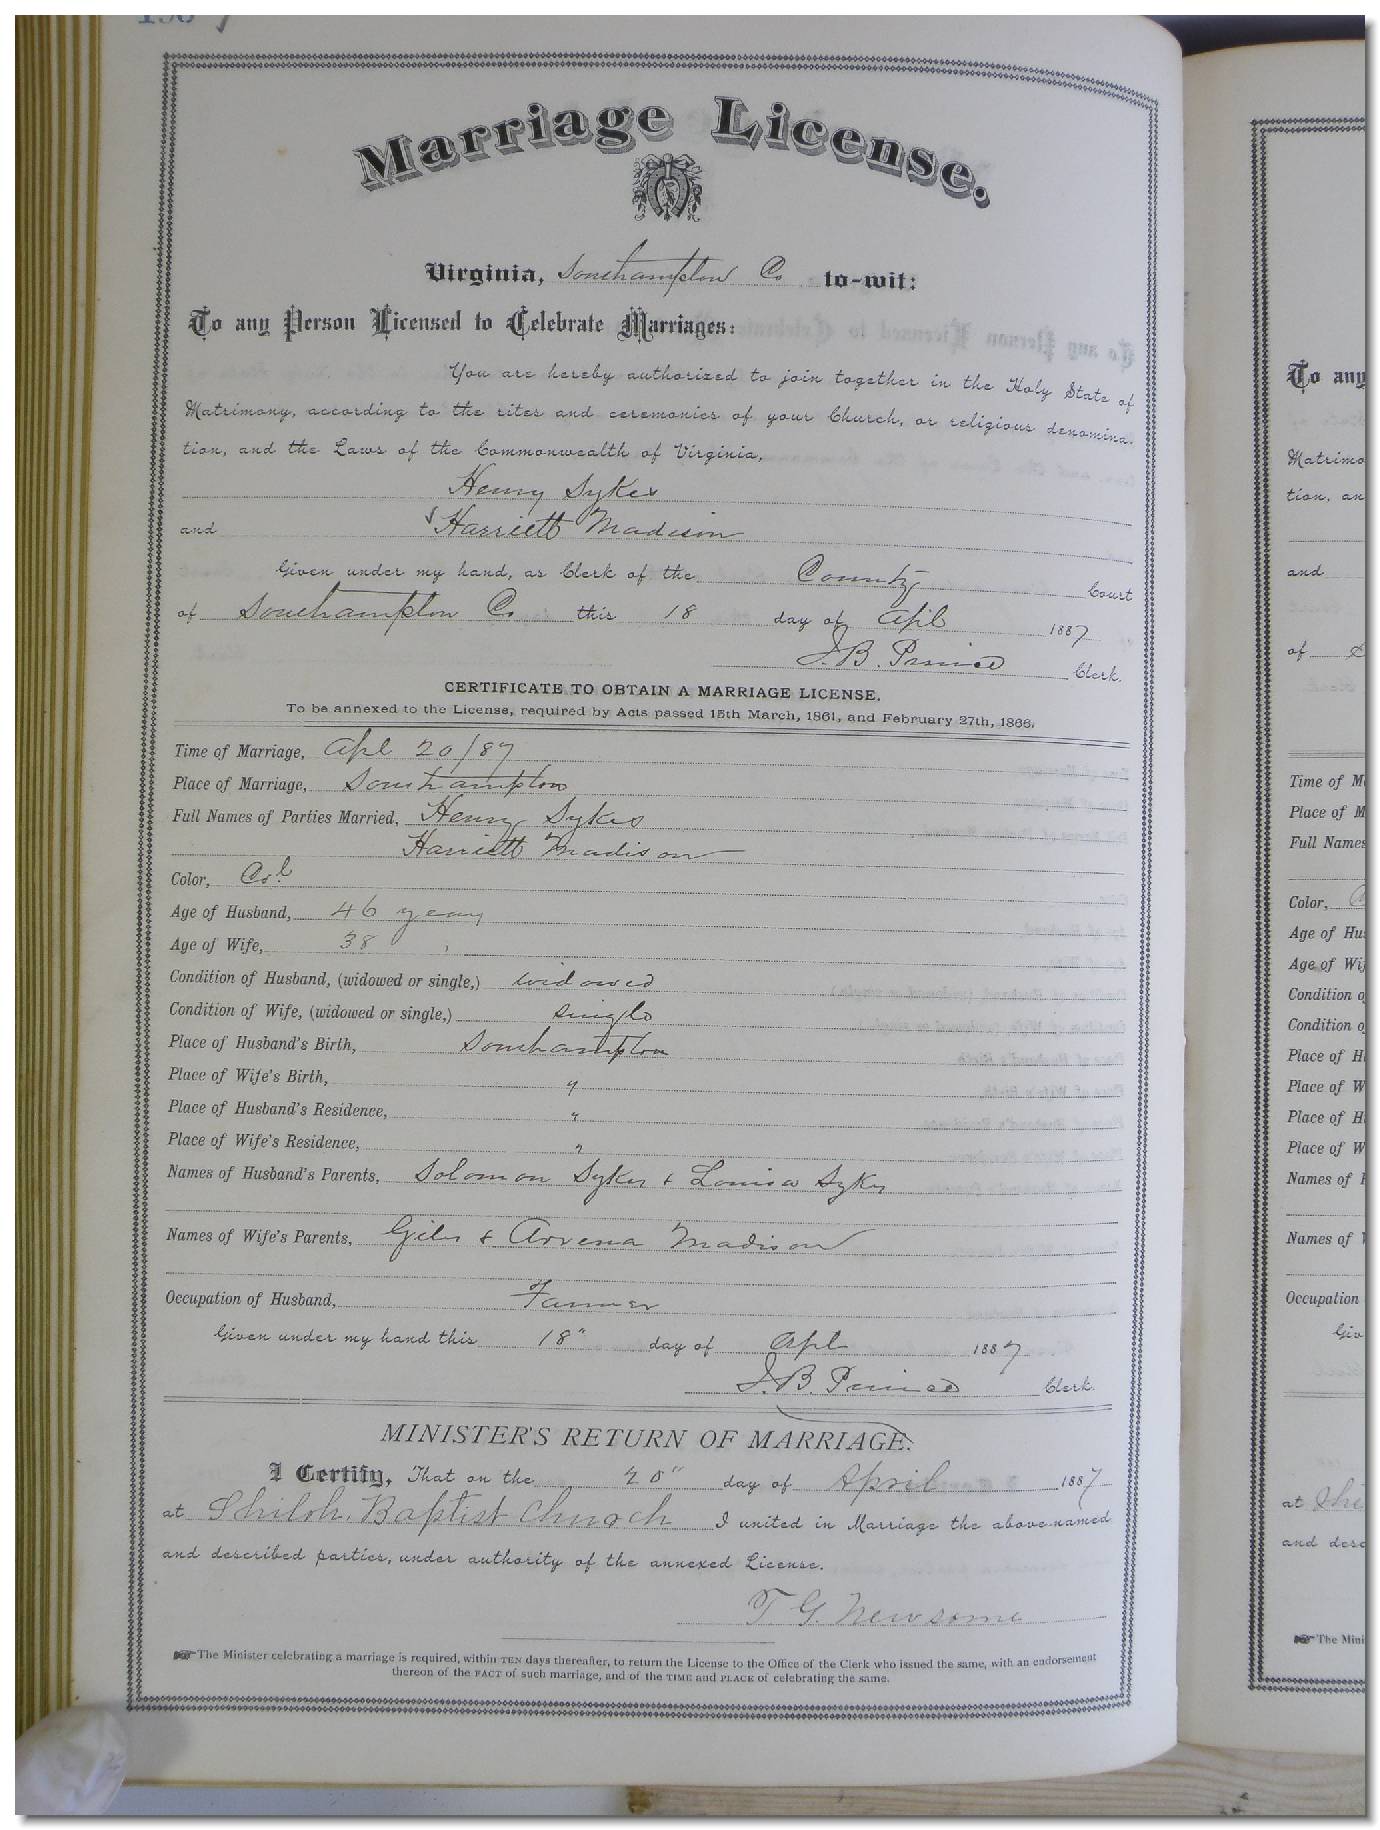 Marriage License.
Virginia, Southampton Co to-wit:
To any Person Licensed to Celebrate Marriages:
You are hereby authorized to join together in the Holy State of
Matrimony, according to the rites and ceremonies of your Church, or religious denomina-
tion, and the Laws of the Commonwealth of Virginia,
Henry Sykes
and Harriett Madison
Given under my hand, as Clerk of the County Court
of Southampton Co this 18 day of Apl 1887
J. B. Prince Clerk.
CERTIFICATE TO OBTAIN A MARRIAGE LICENSE.
To be annexed to the License, required by Acts passed 15th March, 1861, and February 27th, 1866.
Time of Marriage, Apl 20/87
Place of Marriage, Southampton
Full Names of Parties Married, Henry Sykes
Harriett Madison
Color, Col
Age of Husband, 46 years
Age of Wife, 38 "
Condition of Husband, (widowed or single,) widowed
Condition of Wife, (widowed or single,) single
Place of Husband's Birth, Southampton
Place of Wife's Birth, "
Place of Husband's Residence, "
Place of Wife's Residence, "
Names of Husband's Parents, Solomon Sykes & Louisa Sykes
Names of Wife's Parents, Giles & Arvena Madison
Occupation of Husband, Farmer
Given under my hand this 18" day of Apl 1887
J. B. Prince Clerk.
MINISTER'S RETURN OF MARRIAGE.
I Certify, That on the 20" day of April 1887
at Shiloh Baptist Church I united in Marriage the above-named
and described parties, under authority of the annexed License.
T. G. Newsome
The Minister celebrating a marriage is required, within TEN days thereafter, to return the License to the Office of the Clerk who issued the same, with an endorsement
thereon of the FACT of such marriage, and of the TIME and PLACE of celebrating the same.
To any
Matrimo
tion, an
and
of
Time of M
Place of M
Full Names
Color,
Age of Hus
Age of Wif
Condition o
Condition o
Place of H
Place of W
Place of H
Place of W
Names of H
Names of W
Occupation
Giv
at Shi
and desc
The Mini